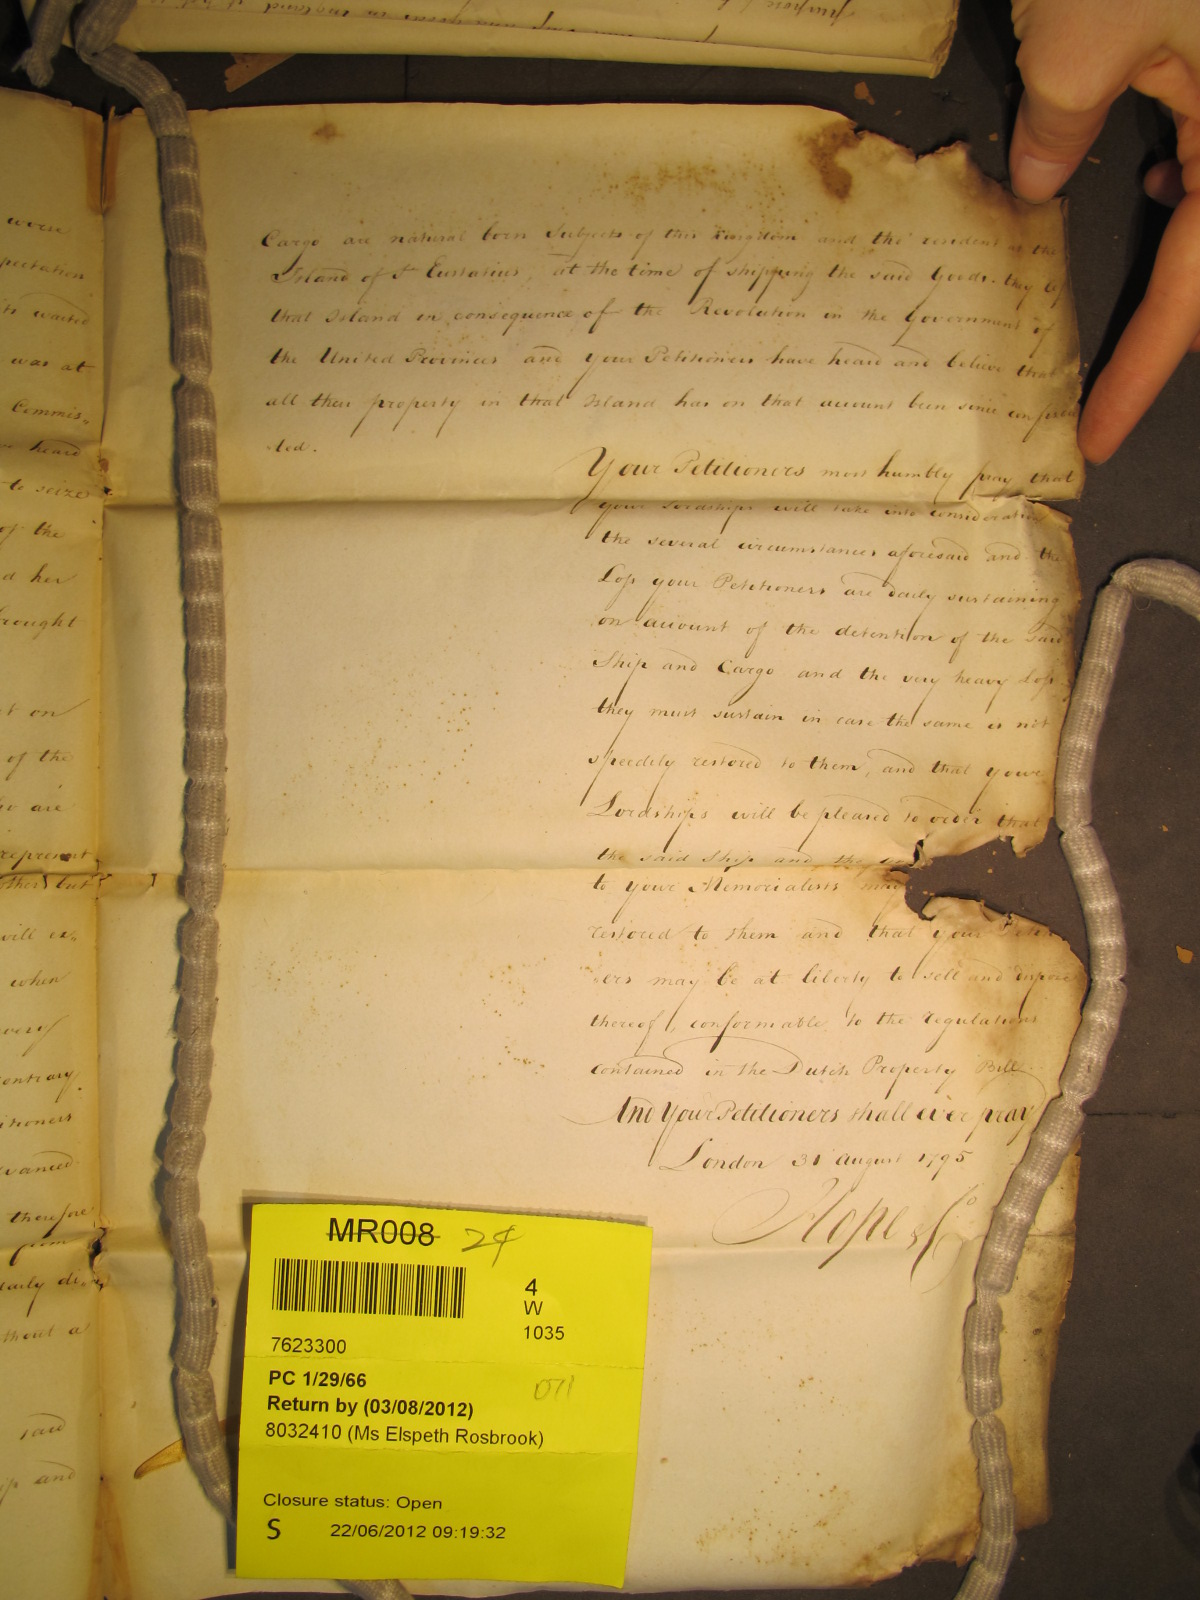 Cargo are natural born Subjects of this Kingdom and tho' resident at the
Island of St Eustatius, at the time of shipping the said Goods. they
that Island in consequence of the Revolution in the Government of
the United Provinces and your Petitioners have heard and believe that
all their property in that Island has on that account been since
ted.
Your Petitioners most humbly pray that
your Lordships will take into consideration
the several circumstances aforesaid and the
Loss your Petitioners are daily sustaining
on account of the detention of the said
Ship and Cargo and the very heavy Loss
they must sustain in case the same is not
speedily restored to them, and that your
Lordships will be pleased to order that
the said Ship and the
to your Memorialists may
restored to them and that your
ers may be at liberty to sell and dispose
thereof, conformable to the regulations
contained in the Dutch Property Bill.
And Your Petitioners shall ever pray
London 31 August 1795
Hope & Co
were
pectation
waited
was at
Commis,,
heard
to seize
of the
d her
brought
t on
of the
are
represent
other but
will ex,,
when
very
contrary
itioners
vanced
therefore
daily
thout a
said
ip and
MR008 24
4
W
1035
7623300
PC 1/29/66
071
Return by (03/08/2012)
8032410 (Ms Elspeth Rosbrook)
Closure status: Open
S 22/06/2012 09:19:32